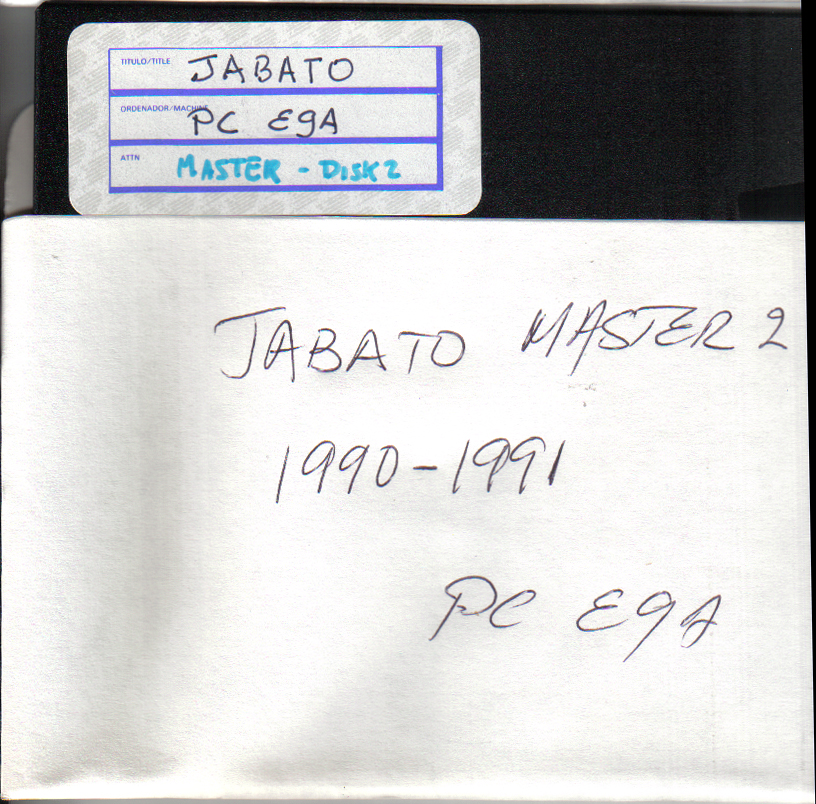 TITULO/TITLE JABATO
ORDENADOR/MACHINE PC EGA
ATTN MASTER - DISK 2
JABATO MASTER 2
1990-1991
PC EGA